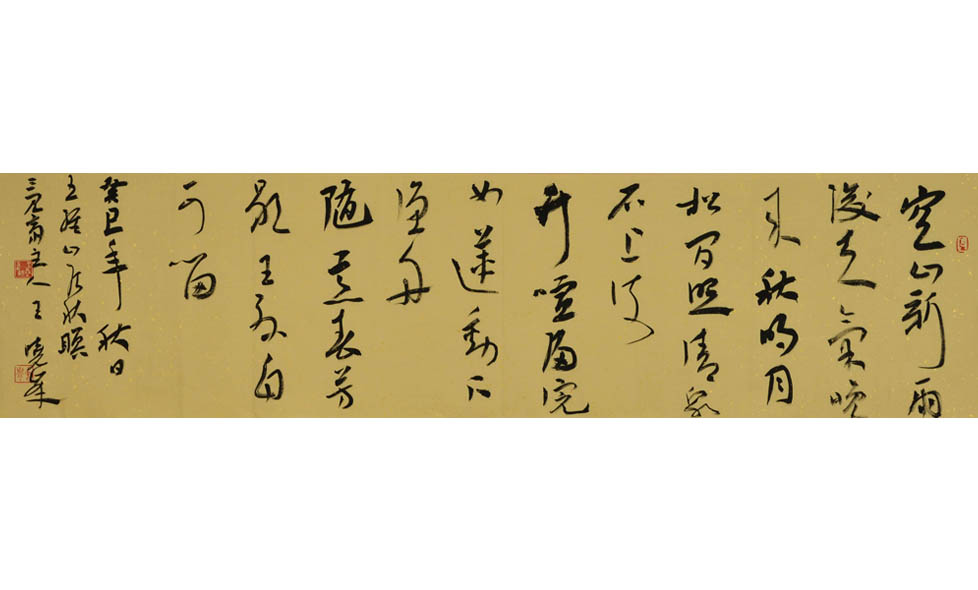 空山新雨
後天氣晚
来秋明月
松间照清泉
石上流
竹喧歸浣
女蓮動下
漁舟
隨意春芳
歇王孫自
可留
癸巳年秋日
王維山居秋暝
三見斋主人王晓峯